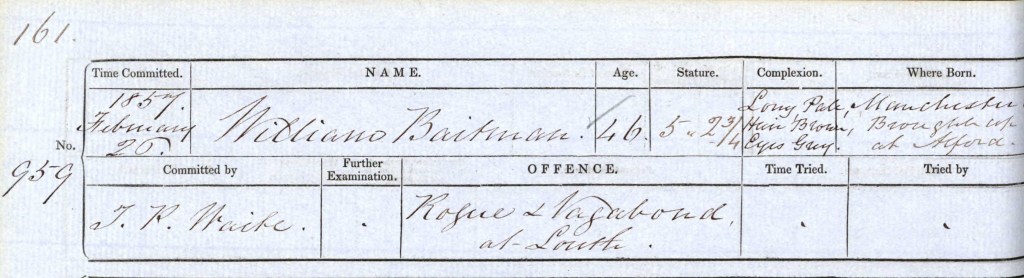 161.
Time Committed. NAME. Age. Stature. Complexion. Where Born.
1857. February 26. William Baitman. 46. 5 " 2 3/4 Long, Pale, Hair Brown, Eyes Grey. Manchester, Brought up at Alford.
No. 959
Committed by Further Examination. OFFENCE. Time Tried. Tried by
T. P. Waite. . Rogue & Vagabond, at Louth. . .